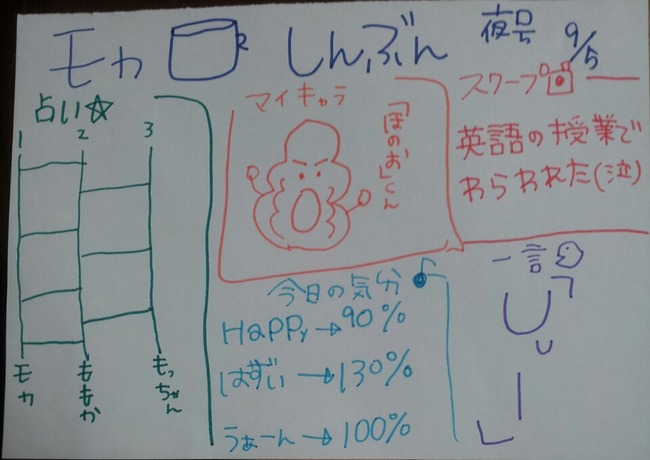 モカ しんぶん 夜号 9/5
占い☆
1 2 3
モカ
ももか
もっちゃん
マイキャラ
「ほのお」くん
スクープ
英語の授業で
わらわれた(泣)
今日の気分
HaPPy→90%
はずい→130%
うぁーん→100%
一言